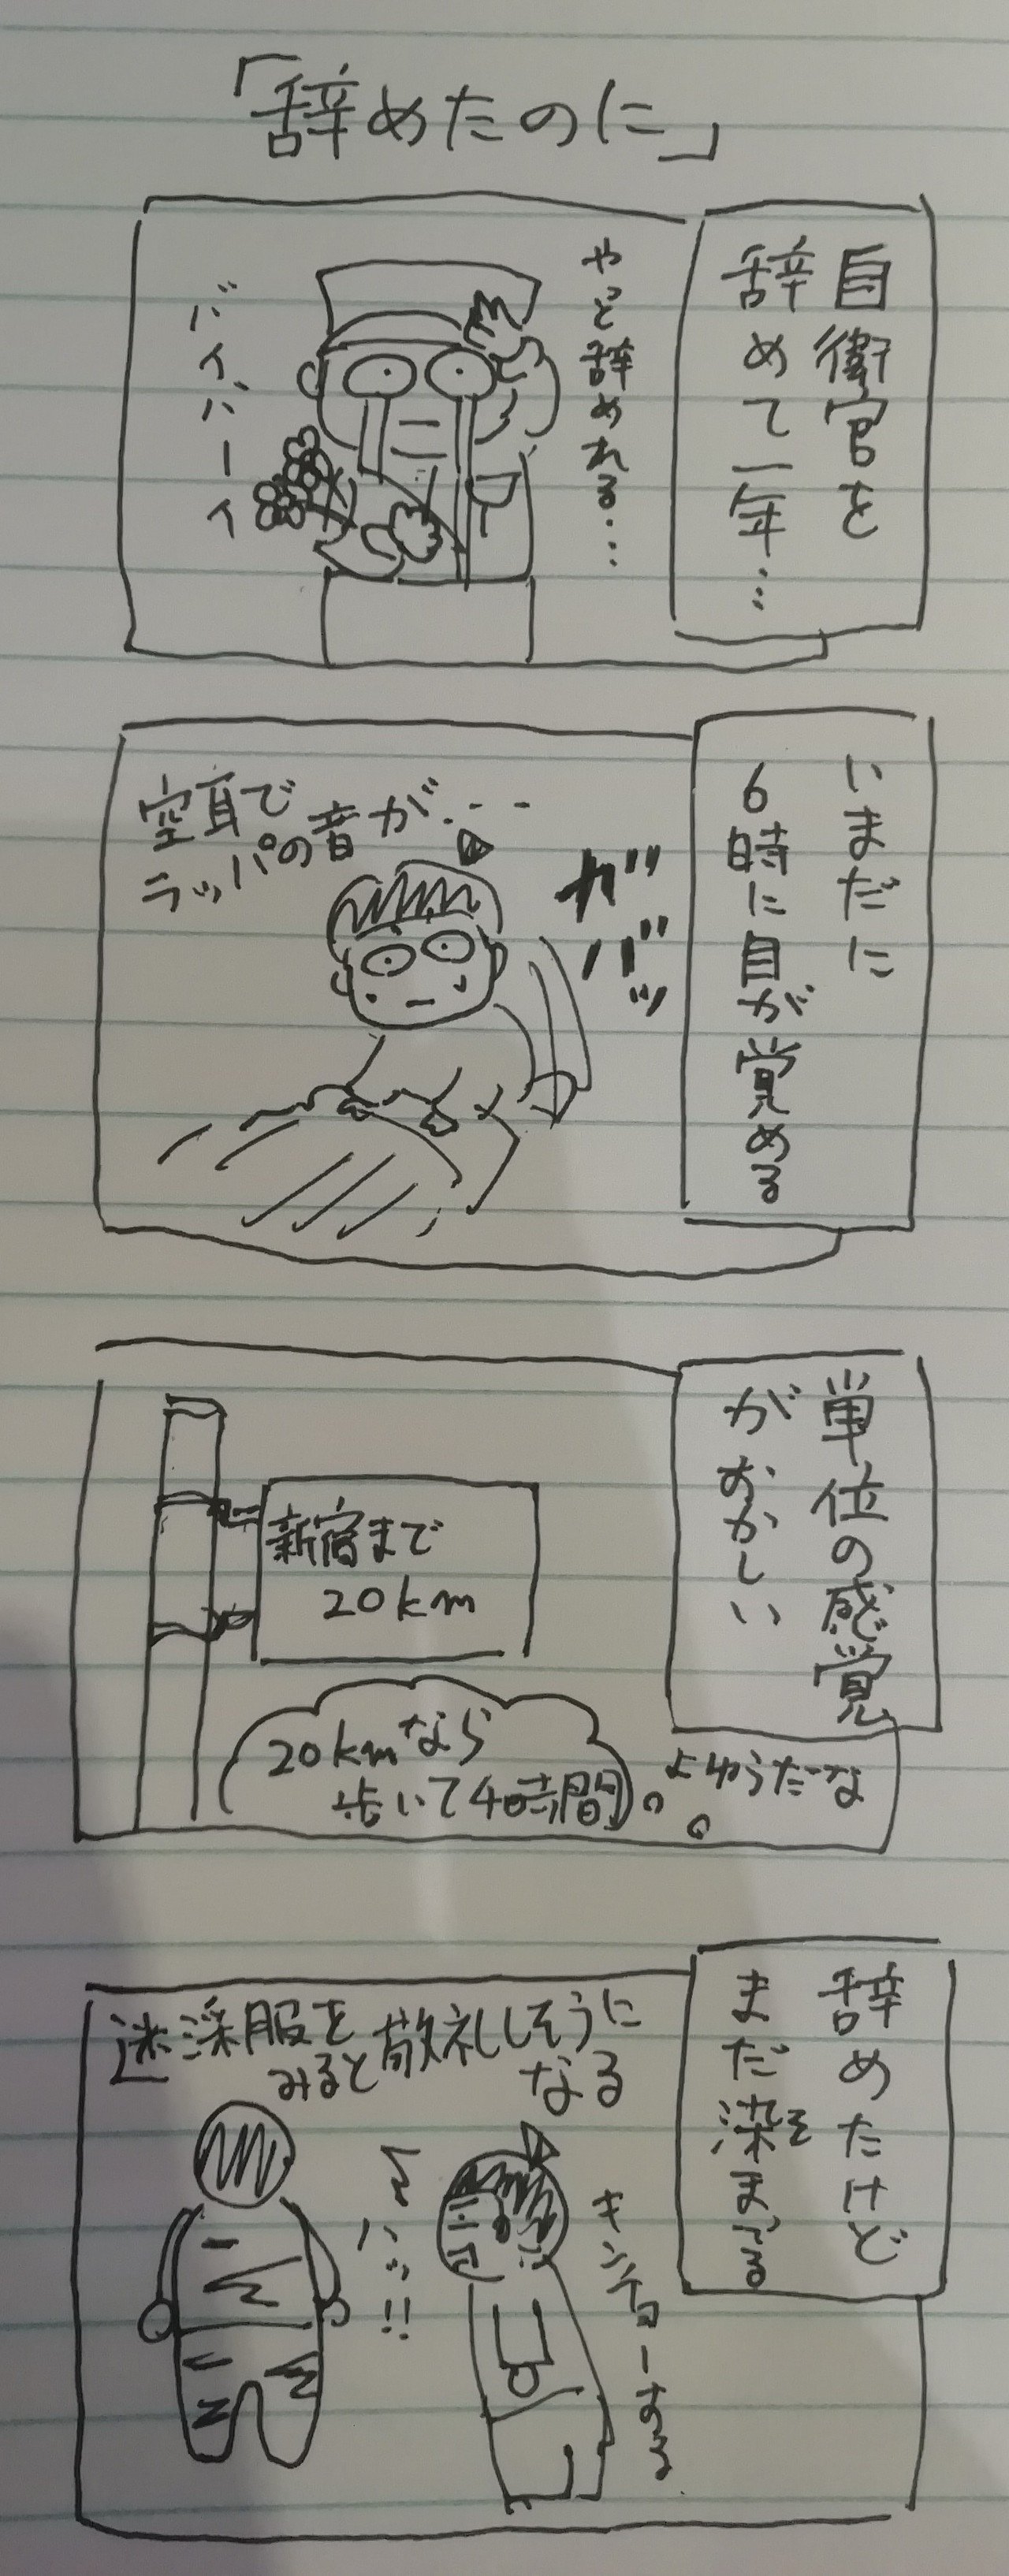 「辞めたのに」
自衛官を
辞めて一年…
やっと辞めれる…
バイバーイ
いまだに
6時に目が覚める
ガバッ
空耳で
ラッパの音が...
単位の感覚
がおかしい
新宿まで
20km
20kmなら
歩いて4時間
よゆうだな
辞めたけど
まだ染まってる
そ
迷彩服を
みると敬礼しそうに
なる
ハッ!!
キンチョーする